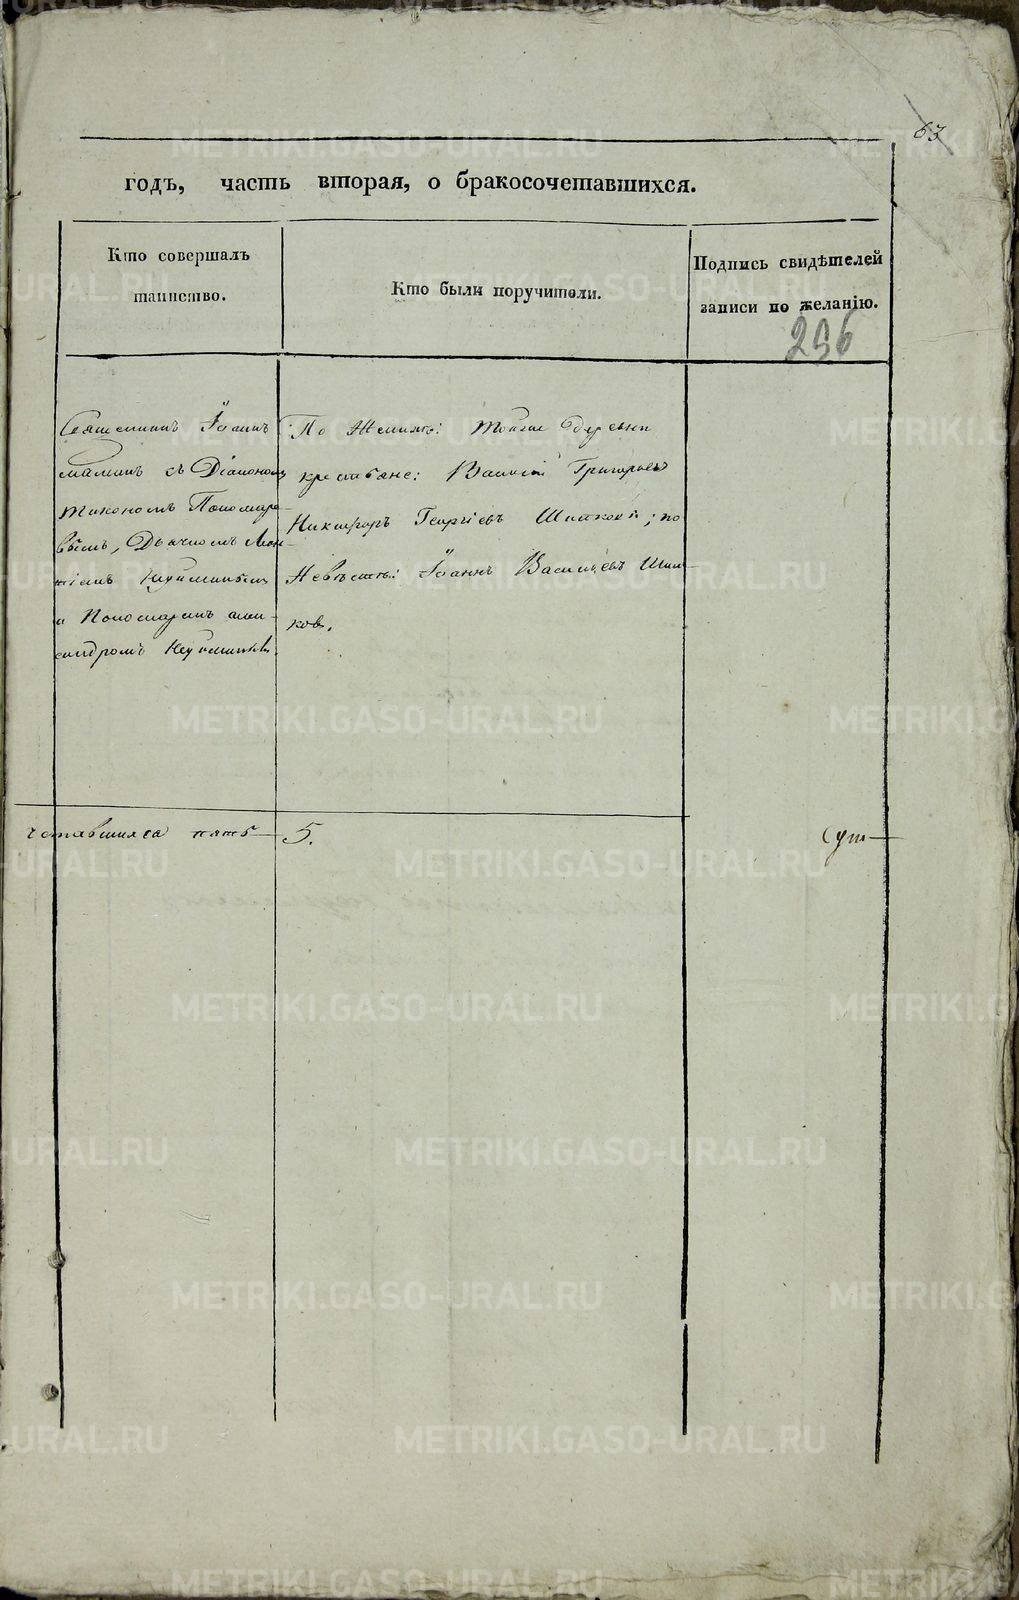 63
годъ, часть вторая, о бракосочетавшихся.
Кто совершалъ
таинство.
Кто были поручители.
Подпись свидѣтелей
записи по желанію.
296
Священникъ Іоаннъ
съ Діакономъ
Тихономъ Пономаре-
вымъ, Дьячкомъ
и Пономаремъ алек-
сандромъ
По Женихѣ: тойже деревни
крестьяне: Василій Григорьевъ
Никифоръ Георгіевъ; по
Невѣстѣ: Іоаннъ Васильевъ Шип-
ковъ.
четавшихся пять 5.
METRIKI.GASO-URAL.RU